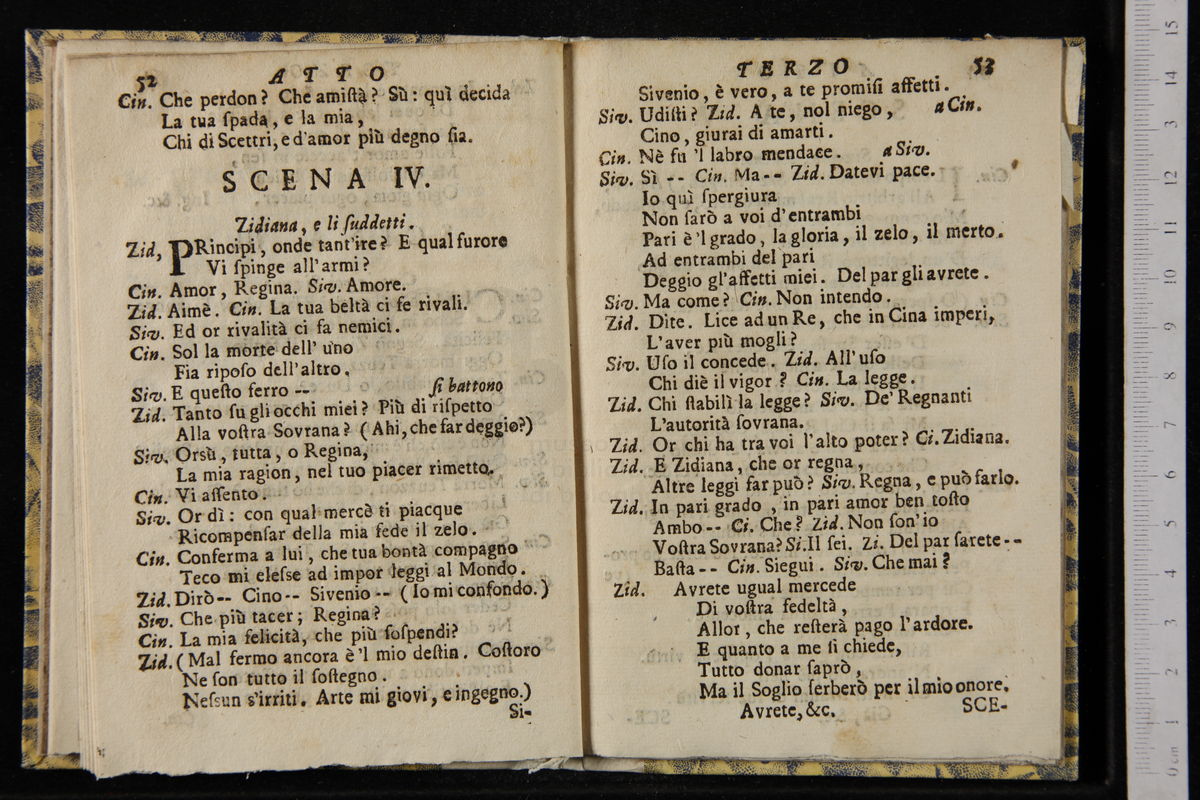 52 ATTO
Cin. Che perdon? Che amiſtà? Sù: quì decida
La tua ſpada, e la mia,
Chi di Scettri, e d'amor più degno ſia.
SCENA IV.
Zidiana, e li ſuddetti.
Zid, PRincipi, onde tant'ire? E qual furore
Vi ſpinge all'armi?
Cin. Amor, Regina. Siv. Amore.
Zid. Aimè. Cin. La tua beltà ci fe rivali.
Siv. Ed or rivalità ci fa nemici.
Cin. Sol la morte dell'uno
Fia ripoſo dell'altro.
Siv. E queſto ferro -- ſi battono
Zid. Tanto ſu gli occhi miei? Più di riſpetto
Alla voſtra Sovrana? (Ahi, che far deggio?)
Siv. Orsù, tutta, o Regina,
La mia ragion, nel tuo piacer rimetto.
Cin. Vi aſſento.
Siv. Or dì: con qual mercè ti piacque
Ricompenſar della mia fede il zelo.
Cin. Conferma a lui, che tua bontà compagno
Teco mi eleſse ad impor leggi al Mondo.
Zid. Dirò-- Cino-- Sivenio -- (Io mi confondo.)
Siv. Che più tacer; Regina?
Cin. La mia felicità, che più ſoſpendi?
Zid. (Mal fermo ancora è 'l mio deſtin. Coſtoro
Ne ſon tutto il ſoſtegno.
Neſsun s'irriti. Arte mi giovi, e ingegno.)
Si-
TERZO 53
Sivenio, è vero, a te promiſi affetti.
Siv. Udiſti? Zid. A te, nol niego, a Cin.
Cino, giurai di amarti.
Cin. Nè fu 'l labro mendace. a Siv.
Siv. Sì -- Cin. Ma-- Zid. Datevi pace.
Io quì ſpergiura
Non ſarò a voi d'entrambi
Pari è 'l grado, la gloria, il zelo, il merto.
Ad entrambi del pari
Deggio gl'affetti miei. Del par gli avrete.
Siv. Ma come? Cin. Non intendo.
Zid. Dite. Lice ad un Re, che in Cina imperi,
L'aver più mogli?
Siv. Uſo il concede. Zid. All'uſo
Chi diè il vigor? Cin. La legge.
Zid. Chi ſtabilì la legge? Siv. De' Regnanti
L'autorità ſovrana.
Zid. Or chi ha tra voi l'alto poter? Ci. Zidiana.
Zid. E Zidiana, che or regna,
Altre leggi far può? Siv. Regna, e può farlo.
Zid. In pari grado, in pari amor ben toſto
Ambo-- Ci. Che? Zid. Non ſon'io
Voſtra Sovrana? Si. Il ſei. Zi. Del par ſarete--
Baſta-- Cin. Siegui. Siv. Che mai?
Zid. Avrete ugual mercede
Di voſtra fedeltà,
Allor, che reſterà pago l'ardore.
E quanto a me ſi chiede,
Tutto donar ſaprò,
Ma il Soglio ſerberò per il mio onore.
Avrete, &c. SCE-